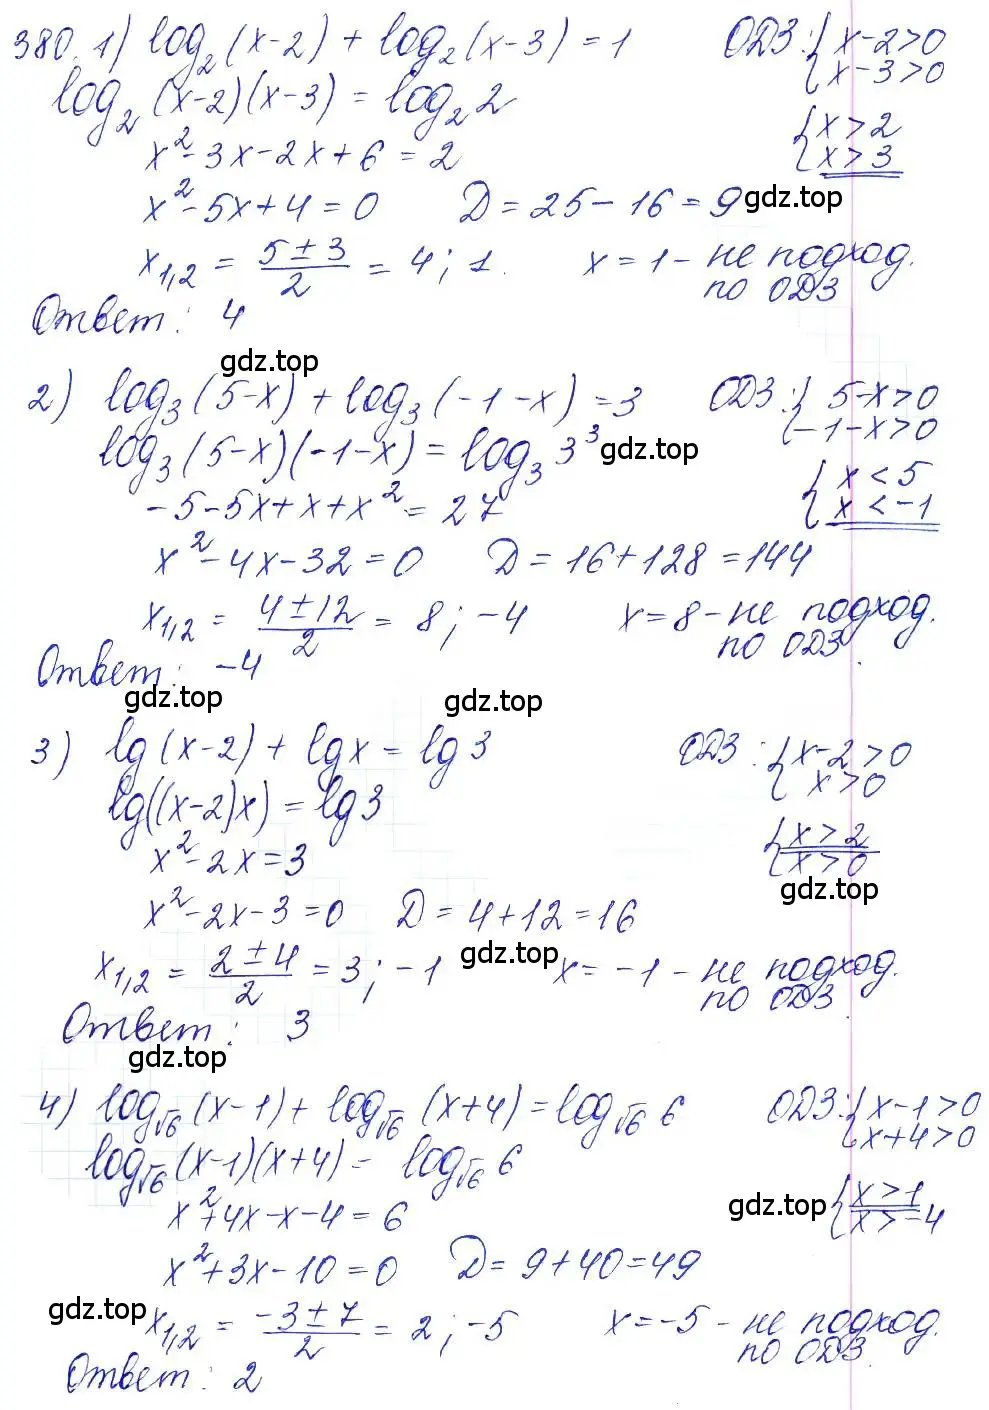 380. 1) log₂(x-2) + log₂(x-3) = 1 ОДЗ: { x-2>0
{ x-3>0
log₂(x-2)(x-3) = log₂2
{ x>2
{ x>3
x²-3x-2x+6 = 2
x²-5x+4=0 Д=25-16=9
gdz.top
x₁,₂ = (5±3)/2 = 4; 1. x=1 - не подход.
по ОДЗ
Ответ: 4
gdz.top
2) log₃(5-x) + log₃(-1-x) = 3 ОДЗ: { 5-x>0
{ -1-x>0
log₃(5-x)(-1-x) = log₃3³
gdz.top
{ x<5
{ x<-1
-5-5x+x+x² = 27
x²-4x-32=0 Д=16+128=144
x₁,₂ = (4±12)/2 = 8; -4 x=8 - не подход.
по ОДЗ.
Ответ: -4
gdz.top gdz.top
3) lg(x-2) + lgx = lg3 ОДЗ: { x-2>0
{ x>0
lg((x-2)x) = lg3
{ x>2
{ x>0
x²-2x=3
gdz.top
x²-2x-3=0 Д=4+12=16
gdz.top
x₁,₂ = (2±4)/2 = 3; -1 x=-1 - не подход.
по ОДЗ.
Ответ: 3
gdz.top
4) log√6(x-1) + log√6(x+4) = log√6 6 ОДЗ: { x-1>0
{ x+4>0
log√6(x-1)(x+4) = log√6 6
{ x>1
{ x>-4
gdz.top
x²+4x-x-4=6
x²+3x-10=0 Д=9+40=49
gdz.top
x₁,₂ = (-3±7)/2 = 2; -5 x=-5 - не подход.
по ОДЗ.
Ответ: 2